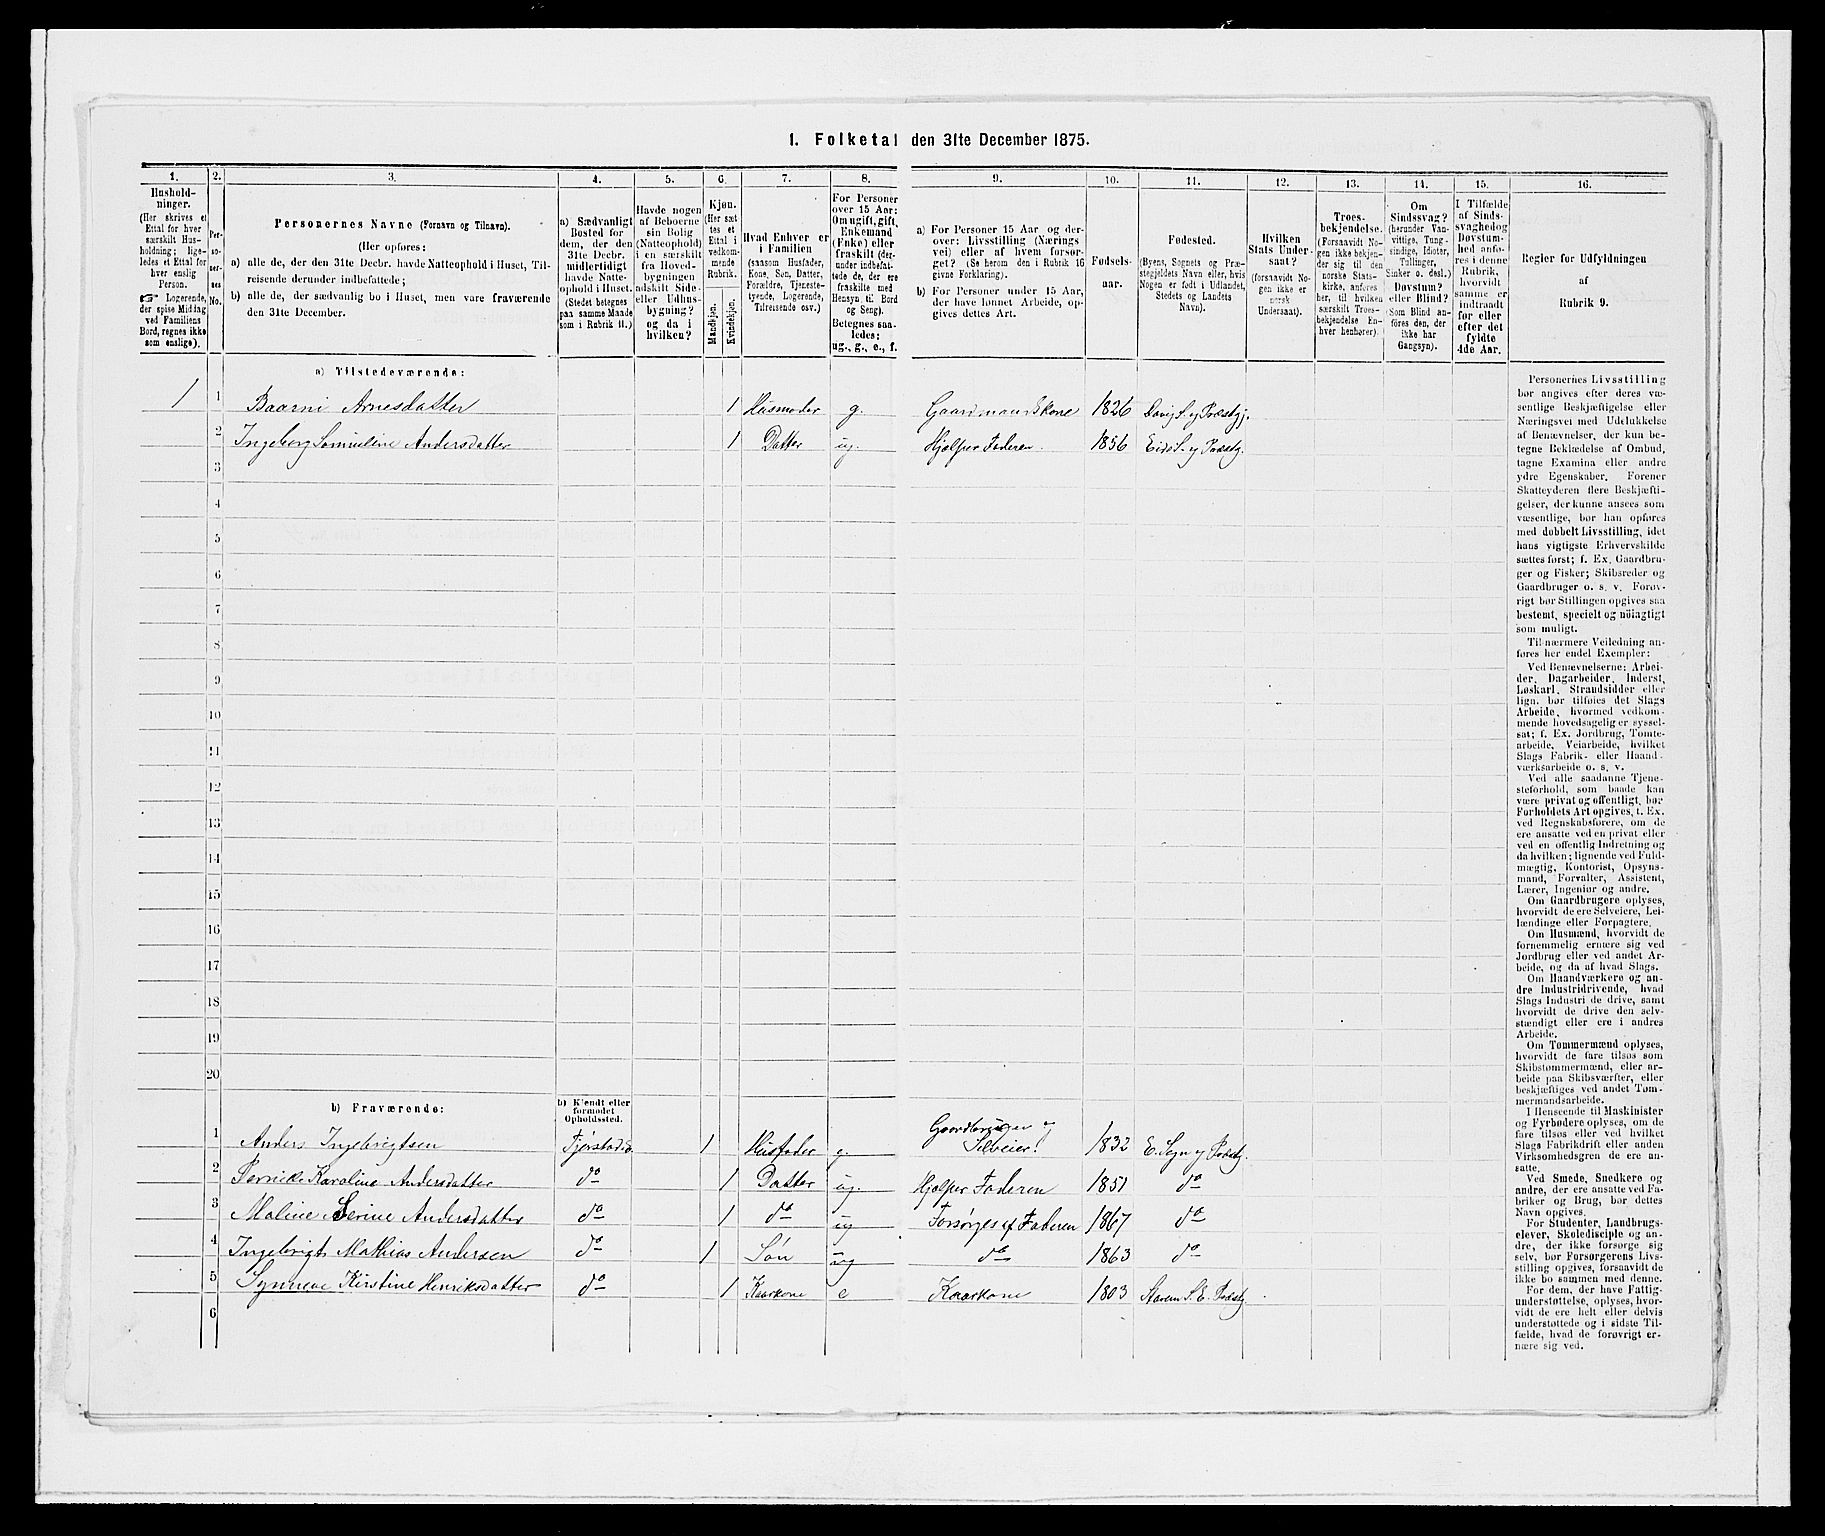 1. Folketal den 31te December 1875.
1. 2. 3. 4. 5. 6. 7. 8. 9. 10. 11. 12. 13. 14. 15. 16.
Hushold-
ninger.
(Her skrives et
Ettal for hver
særskilt Hus-
holdning; lige-
ledes et Ettal for
hver enslig
Person.
☞ Logerende,
der spise Middag
ved Familiens
Bord, regnes ikke
som enslige).
Per-
so-
ner-
nes
No.
Personernes Navne (Fornavn og Tilnavn).
(Her opføres:
a) alle de, der den 31te Decbr. havde Natteophold i Huset, Til-
reisende derunder indbefattede;
b) alle de, der sædvanlig bo i Huset, men vare fraværende
den 31te December.
a) Sædvanligt
Bosted for
dem, der den
31te Decbr.
midlertidigt
havde Natte-
ophold i Huset.
(Stedet betegnes
paa samme Maade
som i Rubrik 11.)
Havde nogen
af Beboerne
sin Bolig
(Natteophold)
i en særskilt
fra Hoved-
bygningen
adskilt Side-
eller Udhus-
bygning?
og da i
hvilken?
Kjøn.
(Her sæt-
tes et
Ettal i
vedkom-
mende
Rubrik.
Mandkjøn.
Kvindekjøn.
Hvad Enhver er
i Familien
(saasom Husfader,
Kone, Søn, Datter,
Forældre, Tjeneste-
tyende, Logerende,
Tilreisende osv.)
For Personer
over 15 Aar:
Om ugift, gift,
Enkemand
(Enke) eller
fraskilt (der-
under indbefat-
tede de, der ere
fraskilte med
Hensyn til Bord
og Seng).
Betegnes saa-
ledes:
ug., g., e., f.
a) For Personer 15 Aar og der-
over: Livsstilling (Nærings
vei) eller af hvem forsør-
get? (Se herom den i Rubrik 16
givne Forklaring).
b) For Personer under 15 Aar,
der have lønnet Arbeide, op-
gives dettes Art.
Fødsels-
aar.
Fødested.
(Byens, Sognets og Præ-
stegjeldets Navn eller, hvis
Nogen er født i Udlandet,
Stedets og Landets
Navn).
Hvilken
Stats Under-
saat?
(forsaavidt No-
gen ikke er
norsk
Undersaat).
Troes-
bekjendelse.
(Forsaavidt No-
gen ikke bekjen-
der sig til den
norske Stats-
kirke, anføres
her, til hvilken
særskilt Troes-
bekjendelse En-
hver henhører).
Om
Sindssvag?
(herunder Van-
vittige, Tung-
sindige, Idioter,
Tullinger,
Sinker o. desl.)
Døvstum?
eller Blind?
(Som Blind an-
føres den, der
ikke har
Gangsyn).
I Tilfælde
af Sinds-
svaghed og
Døvstum-
hed anfø-
res i denne
Rubrik,
hvorvidt
samme er
indtraadt
før eller
efter det
fyldte
4de Aar.
Regler for Udfyldningen
af
Rubrik 9.
a) Tilstedeværende:
1 1 Baarni Arnesdatter 1 Husmoder g. Gaardmandskone 1826 Davig S. og Præstgj.
2 Ingeborg Samueline Andersdatter 1 Datter ug. Hjælper Faderen. 1856 Eids S. og Præstg.
3
4
5
6
7
8
9
10
11
12
13
14
15
16
17
18
19
20
b) Fraværende:
b) Kjendt eller
formodet
Opholdssted.
1 Anders Ingebrigtsen 1 Husfader g. Gaardbruger og
Selveier. 1832 E. Sogn og Præstg.
2 Karoline Andersdatter do 1 Datter ug. Hjælper Faderen 1851 do
3 Maline Serine Andersdatter do 1 do ug Forsørges af Faderen 1867 do
4 Ingebrigt Mathias Andersen do 1 Søn ug do 1863 do
5 Synneve Kirstine Henriksdatter do 1 Kaarkone e Kaarkone 1803 S. E. Præstg.
6
Personernes Livsstilling
bør angives efter deres væ-
sentlige Beskjæftigelse eller
Næringsvei med Udelukkelse
af Benævnelser, der kun be-
tegne Beklædelse af Ombud,
tagne Examina eller andre
ydre Egenskaber. Forener
Skatteyderen flere Beskjæfti-
gelser, der kunne ansees som
væsentlige, bør han opføres
med dobbelt Livsstilling, idet
hans vigtigste Erhvervskilde
sættes først; f. Ex. Gaardbru-
ger og Fisker; Skibsreder og
Gaardbruger o. s. v. Forøv-
rigt bør Stillingen opgives saa
bestemt, specielt og nöiagtigt
som muligt.
Til nærmere Veiledning an-
føres her endel Exempler:
Ved Benævnelserne: Arbei-
der, Dagarbeider, Inderst,
Løskarl, Strandsidder eller
lign. bør tilføies det Slags
Arbeide, hvormed vedkom-
mende hovedsagelig er syssel-
sat; f. Ex. Jordbrug, Tomte-
arbeide, Veiarbeide, hvilket
Slags Fabrik- eller Haand-
værksarbeide o. s. v.
Ved alle saadanne Tjene-
steforhold, som baade kan
være privat og offentligt, bør
Forholdets Art opgives, t. Ex.
ved Regnskabsførere, om de
ere ansatte ved en privat eller
ved en offentlig Indretning og
da hvilken; lignende ved Fuld-
mægtig, Kontorist, Opsyns-
mand, Forvalter, Assistent,
Lærer, Ingeniør og andre.
Om Gaardbrugere oplyses,
hvorvidt de ere Selveiere, Lei-
lændinge eller Forpagtere.
Om Husmænd, hvorvidt de
fornemmelig ernære sig ved
Jordbrug eller ved andet Ar-
beide, og da af hvad Slags.
Om Haandværkere og an-
dre Industridrivende, hvad
Slags Industri de drive, samt
hvorvidt de drive den selv-
stændigt eller ere i andres
Arbeide.
Om Tømmermænd oplyses,
hvorvidt de fare tilsøs som
Skibstømmermænd, eller ar-
beide paa Skibsværfter, eller
beskjæftiges ved andet Tøm-
mermandsarbeide.
I Henseende til Maskinister
og Fyrbødere oplyses, om de
fare tilsøs eller ved hvilket
Slags Fabrikdrift eller anden
Virksomhedsgren de ere an-
satte.
Ved Smede, Snedkere og
andre, der ere ansatte ved Fa-
briker og Brug, bør dettes
Navn opgives.
For Studenter, Landbrugs-
elever, Skoledisciple og an-
dre, der ikke forsørge sig
selv, bør Forsørgerens Livs-
stilling opgives, forsaavidt de
ikke bo sammen med denne.
For dem, der have Fattig-
understøttelse, oplyses, hvor-
vidt de ere helt eller delvis
understøttede og i sidste Til-
fælde, hvad de forøvrigt er-
nære sig ved.